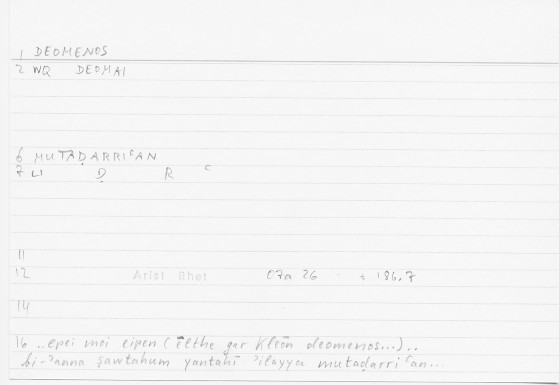 1 DEOMENOS
2 WQ DEOMAI
6 MUTAḌARRIʿAN
7 LI Ḍ R ʿ
11
12 Arist Rhet 07a 26 186,7
14
16 ..epei moi eipen (ēlthe gar Kleōn deomenos...)..
bi-ʾanna ṣawtahum yantahī ʾilayya mutaḍarriʿan...